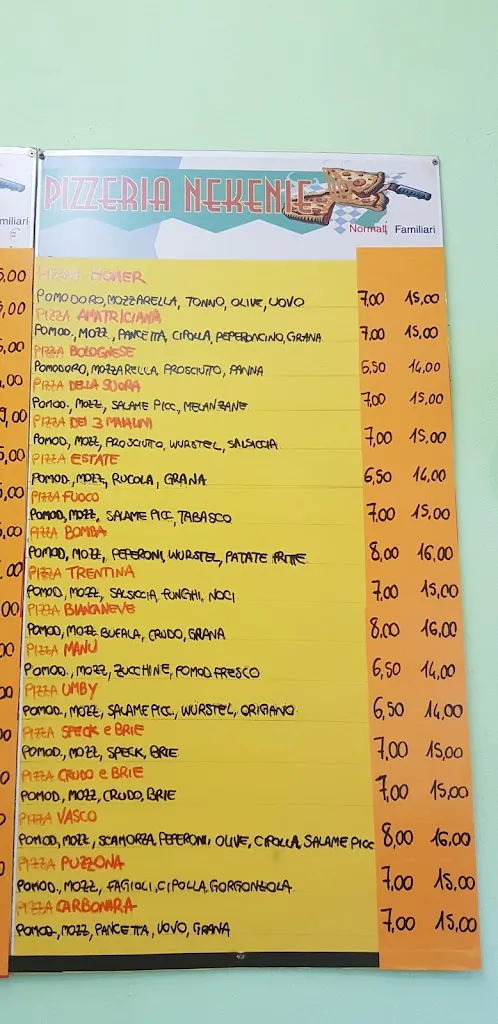 PIZZERIA NEKENIE
Normali Familiari
miliari
€
PIZZA HOMER
POMODORO, MOZZARELLA, TONNO, OLIVE, UOVO 7,00 15,00
PIZZA AMATRICIANA
POMOD., MOZZ, PANCETTA, CIPOLLA, PEPERONCINO, GRANA 7,00 15,00
PIZZA BOLOGNESE
POMODORO, MOZZARELLA, PROSCIUTTO, PANNA 6,50 14,00
PIZZA DELLA SUORA
POMOD., MOZZ, SALAME PICC, MELANZANE 7,00 15,00
PIZZA DEI 3 MAIALINI
POMOD., MOZZ, PROSCIUTTO, WURSTEL, SALSICCIA 7,00 15,00
PIZZA ESTATE
POMOD., MOZZ, RUCOLA, GRANA 6,50 14,00
PIZZA FUOCO
POMOD, MOZZ, SALAME PICC, TABASCO 7,00 15,00
PIZZA BOMBA
POMOD, MOZZ, PEPERONI, WURSTEL, PATATE FRITTE 8,00 16,00
PIZZA TRENTINA
POMOD, MOZZ, SALSICCIA, FUNGHI, NOCI 7,00 15,00
PIZZA BIANCANEVE
POMOD, MOZZ BUFALA, CRUDO, GRANA 8,00 16,00
PIZZA MANU
POMOD., MOZZ, ZUCCHINE, POMOD FRESCO 6,50 14,00
PIZZA UMBY
POMOD., MOZZ, SALAME PICC, WURSTEL, ORIGANO 6,50 14,00
PIZZA SPECK e BRIE
POMOD., MOZZ, SPECK, BRIE 7,00 15,00
PIZZA CRUDO e BRIE
POMOD., MOZZ, CRUDO, BRIE 7,00 15,00
PIZZA VASCO
POMOD, MOZZ, SCAMORZA, PEPERONI, OLIVE, CIPOLLA, SALAME PICC 8,00 16,00
PIZZA PUZZONA
POMOD., MOZZ, FAGIOLI, CIPOLLA, GORGONZOLA 7,00 15,00
PIZZA CARBONARA
POMOD, MOZZ, PANCETTA, UOVO, GRANA 7,00 15,00